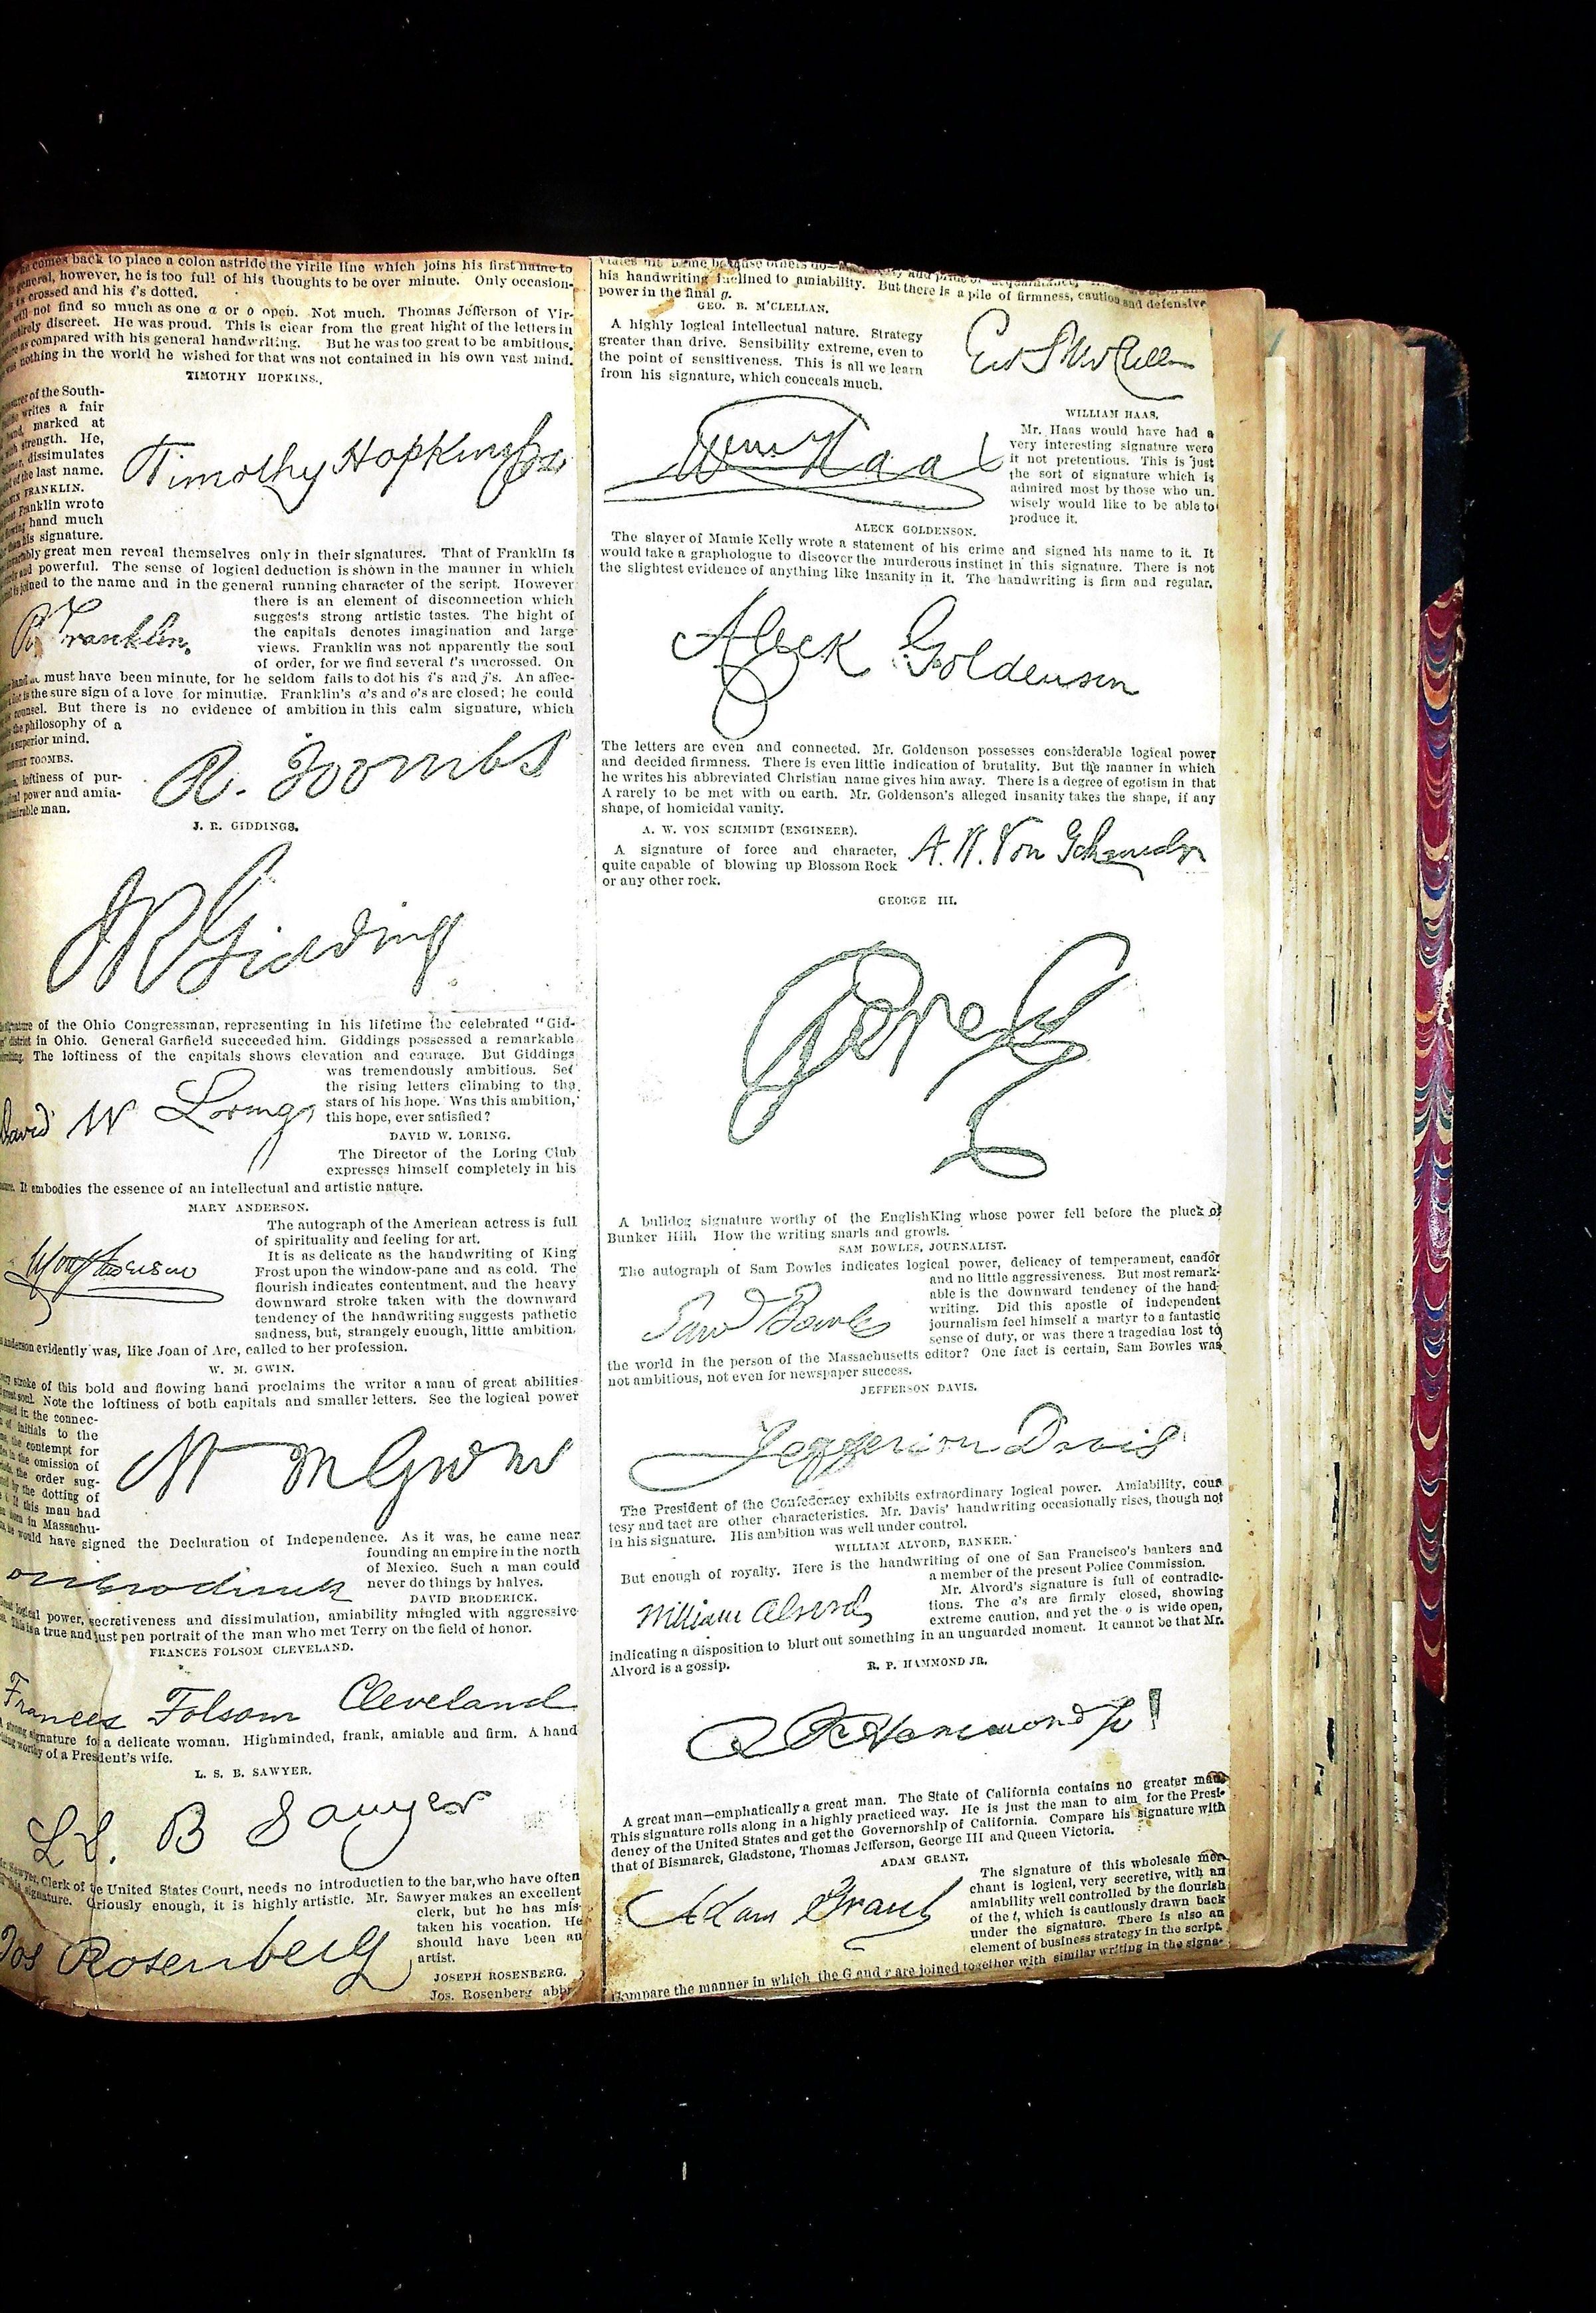 comes back to place a colon astride the virile line which joins his first name to
general, however, he is too full of his thoughts to be over minute. Only occasion-
crossed and his i's dotted.
will not find so much as one a or o open. Not much. Thomas Jefferson of Vir-
entirely discreet. He was proud. This is clear from the great hight of the letters in
as compared with his general handwriting. But he was too great to be ambitious.
nothing in the world he wished for that was not contained in his own vast mind.
TIMOTHY HOPKINS.
of the South-
writes a fair
hand, marked at
strength. He,
dissimulates
of the last name.
FRANKLIN.
Franklin wrote
hand much
his signature.
Timothy Hopkins
great men reveal themselves only in their signatures. That of Franklin is
and powerful. The sense of logical deduction is shown in the manner in which
joined to the name and in the general running character of the script. However
there is an element of disconnection which
suggests strong artistic tastes. The hight of
the capitals denotes imagination and large
views. Franklin was not apparently the soul
of order, for we find several t's uncrossed. On
B Franklin.
must have been minute, for he seldom fails to dot his i's and j's. An affec-
is the sure sign of a love for minutiæ. Franklin's a's and o's are closed; he could
counsel. But there is no evidence of ambition in this calm signature, which
the philosophy of a
superior mind.
TOOMBS.
loftiness of pur-
power and amia-
admirable man.
R. Toombs
J. R. GIDDINGS.
J R Giddings
of the Ohio Congressman, representing in his lifetime the celebrated "Gid-
district in Ohio. General Garfield succeeded him. Giddings possessed a remarkable
The loftiness of the capitals shows elevation and courage. But Giddings
was tremendously ambitious. See
the rising letters climbing to the
stars of his hope. Was this ambition,
this hope, ever satisfied?
David W Loring
DAVID W. LORING.
The Director of the Loring Club
expresses himself completely in his
It embodies the essence of an intellectual and artistic nature.
MARY ANDERSON.
The autograph of the American actress is full
of spirituality and feeling for art.
It is as delicate as the handwriting of King
Frost upon the window-pane and as cold. The
flourish indicates contentment, and the heavy
downward stroke taken with the downward
tendency of the handwriting suggests pathetic
sadness, but, strangely enough, little ambition.
Mary Anderson
Anderson evidently was, like Joan of Arc, called to her profession.
W. M. GWIN.
stroke of this bold and flowing hand proclaims the writer a man of great abilities
soul. Note the loftiness of both capitals and smaller letters. See the logical power
in the connec-
of initials to the
the contempt for
the omission of
the order sug-
by the dotting of
If this man had
born in Massachu-
W m Gwin
he would have signed the Declaration of Independence. As it was, he came near
founding an empire in the north
of Mexico. Such a man could
never do things by halves.
DAVID BRODERICK.
logical power, secretiveness and dissimulation, amiability mingled with aggressive-
This is a true and just pen portrait of the man who met Terry on the field of honor.
FRANCES FOLSOM CLEVELAND.
Frances Folsom Cleveland
A strong signature for a delicate woman. Highminded, frank, amiable and firm. A hand
worthy of a President's wife.
L. S. B. SAWYER.
L. S. B Sawyer
Mr. Sawyer, Clerk of the United States Court, needs no introduction to the bar, who have often
signature. Curiously enough, it is highly artistic. Mr. Sawyer makes an excellent
clerk, but he has mis-
taken his vocation. He
should have been an
artist.
Jos Rosenberg
JOSEPH ROSENBERG.
Jos. Rosenberg abbr
his handwriting inclined to amiability. But there is a pile of firmness, caution and defensive
power in the final g.
GEO. B. M'CLELLAN.
A highly logical intellectual nature. Strategy
greater than drive. Sensibility extreme, even to
the point of sensitiveness. This is all we learn
from his signature, which conceals much.
Geo B McClellan
Wm Haas
WILLIAM HAAS.
Mr. Haas would have had a
very interesting signature were
it not pretentious. This is just
the sort of signature which is
admired most by those who un-
wisely would like to be able to
produce it.
ALECK GOLDENSON.
The slayer of Mamie Kelly wrote a statement of his crime and signed his name to it. It
would take a graphologue to discover the murderous instinct in this signature. There is not
the slightest evidence of anything like insanity in it. The handwriting is firm and regular.
Aleck Goldenson
The letters are even and connected. Mr. Goldenson possesses considerable logical power
and decided firmness. There is even little indication of brutality. But the manner in which
he writes his abbreviated Christian name gives him away. There is a degree of egotism in that
A rarely to be met with on earth. Mr. Goldenson's alleged insanity takes the shape, if any
shape, of homicidal vanity.
A. W. VON SCHMIDT (ENGINEER).
A signature of force and character,
quite capable of blowing up Blossom Rock
or any other rock.
A. W. Von Schmidt
GEORGE III.
George R
A bulldog signature worthy of the English King whose power fell before the pluck of
Bunker Hill. How the writing snarls and growls.
SAM BOWLES, JOURNALIST.
The autograph of Sam Bowles indicates logical power, delicacy of temperament, candor
and no little aggressiveness. But most remark-
able is the downward tendency of the hand-
writing. Did this apostle of independent
journalism feel himself a martyr to a fantastic
sense of duty, or was there a tragedian lost to
Sam Bowles
the world in the person of the Massachusetts editor? One fact is certain, Sam Bowles was
not ambitious, not even for newspaper success.
JEFFERSON DAVIS.
Jefferson Davis
The President of the Confederacy exhibits extraordinary logical power. Amiability, cour-
tesy and tact are other characteristics. Mr. Davis' handwriting occasionally rises, though not
in his signature. His ambition was well under control.
WILLIAM ALVORD, BANKER.
But enough of royalty. Here is the handwriting of one of San Francisco's bankers and
a member of the present Police Commission.
Mr. Alvord's signature is full of contradic-
tions. The a's are firmly closed, showing
extreme caution, and yet the o is wide open,
William Alvord
indicating a disposition to blurt out something in an unguarded moment. It cannot be that Mr.
Alvord is a gossip.
R. P. HAMMOND JR.
R P Hammond Jr!
A great man—emphatically a great man. The State of California contains no greater man.
This signature rolls along in a highly practiced way. He is just the man to aim for the Presi-
dency of the United States and get the Governorship of California. Compare his signature with
that of Bismarck, Gladstone, Thomas Jefferson, George III and Queen Victoria.
ADAM GRANT.
The signature of this wholesale mer-
chant is logical, very secretive, with an
amiability well controlled by the flourish
of the t, which is cautiously drawn back
under the signature. There is also an
element of business strategy in the script.
Adam Grant
Compare the manner in which the G and r are joined together with similar writing in the signa-